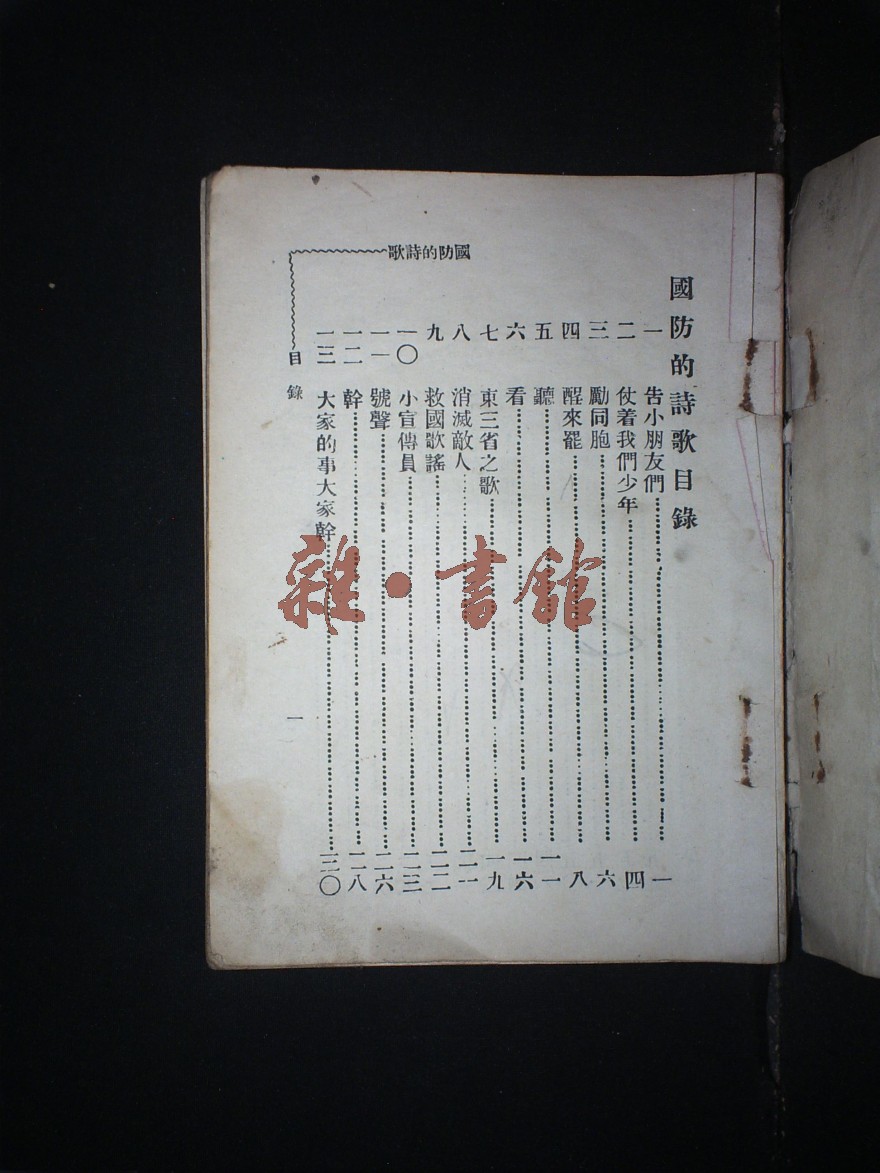 國防的詩歌目錄
一 告小朋友們……一
二 仗着我們少年……四
三 勵同胞……六
四 醒來罷……八
五 聽……一一
六 看……一六
七 東三省之歌……一九
八 消滅敵人……二一
九 救國歌謠……二二
一〇 小宣傳員……二三
一一 號聲……二六
一二 幹……二八
一三 大家的事大家幹……三〇
國防的詩歌
目錄
一
雜·書館